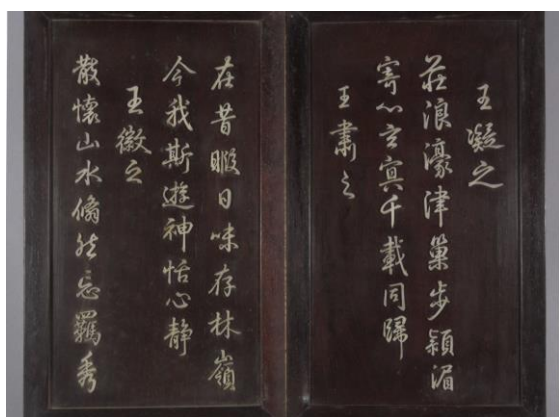 王凝之
莊浪濠津巢步潁湄
寄心玄冥千載同歸
王肅之
在昔暇日味存林嶺
今我斯遊神怡心静
王徽之
散懷山水翛然忘羈秀